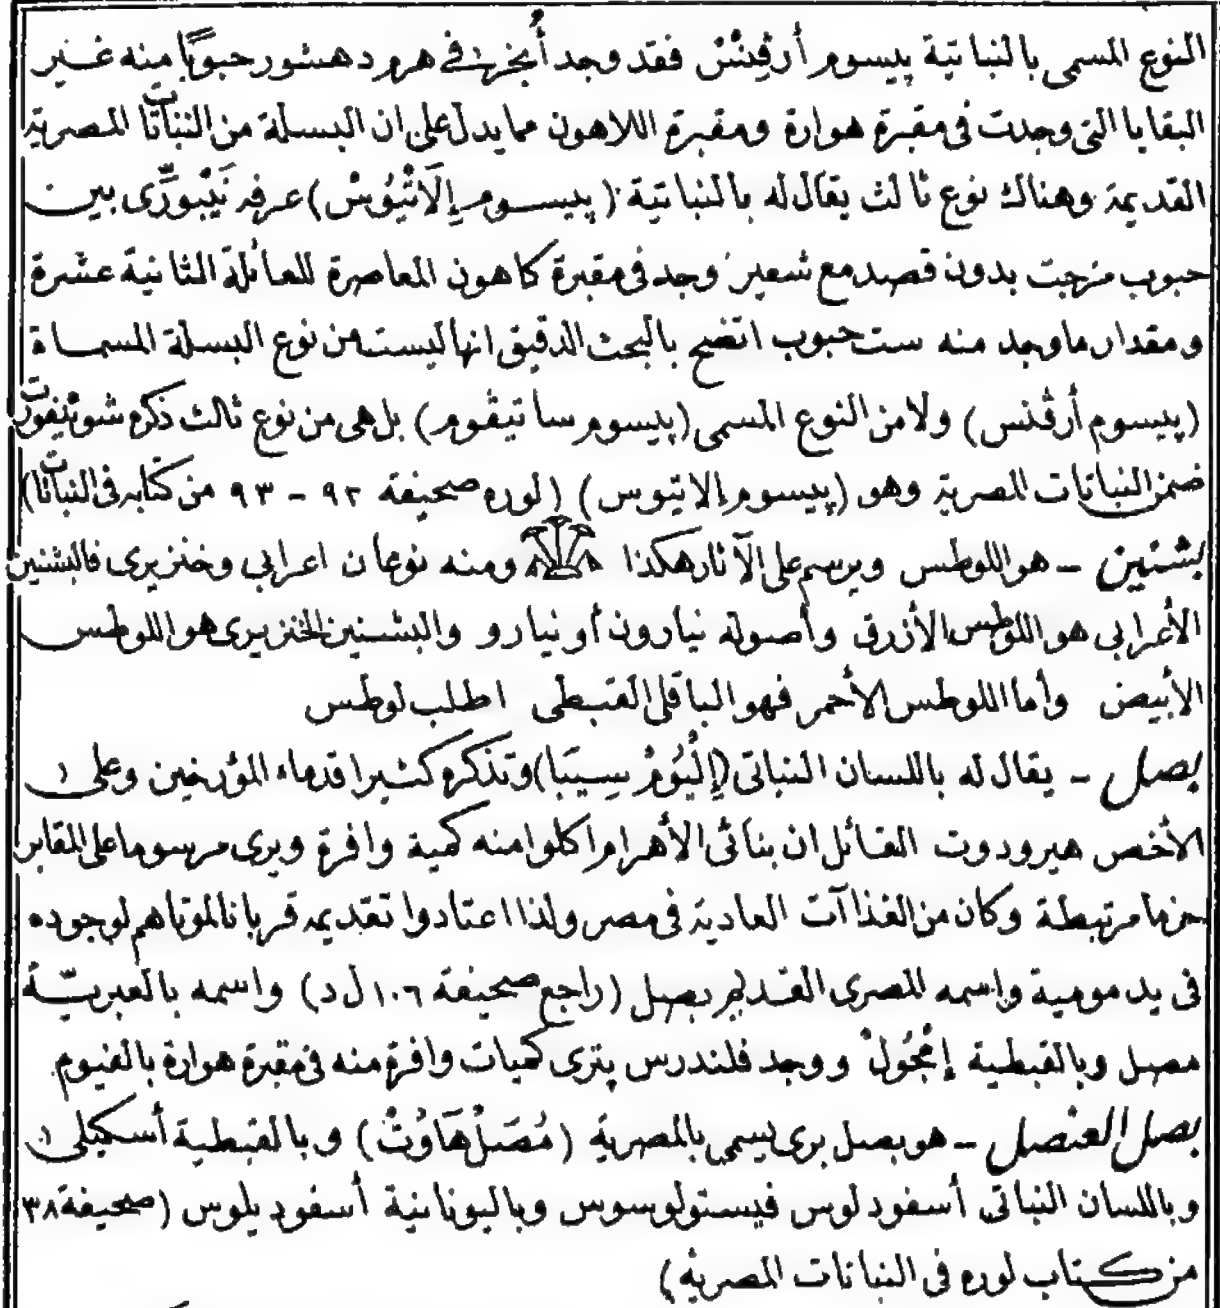 النوع المسمى بالنباتية پيسوم أرڤِنْسْ فقد وجد أُبخرت في هرم دهشور حبوبًا منه غير
البقايا التى وجدت فى مقبرة هوارة ومقبرة اللاهون مما يدل على ان البسلة من النباتات المصرية
القديمة وهناك نوع ثالث يقال له بالنباتية (پيسوم إِلَاتْيُوسْ) عرفه نَيْبُورِّى بين
حبوب مزجت بدون قصد مع شعير وجد فى مقبرة كاهون المعاصرة للعائلة الثانية عشرة
ومقدار ما وجد منه ست حبوب اتضح بالبحث الدقيق انها ليست من نوع البسلة المسماة
(پيسوم أرڤنس) ولا من النوع المسمى (پيسوم ساتيڤوم) بل هى من نوع ثالث ذكره شوئينفورت
ضمن النباتات المصرية وهو (پيسوم إلاتيوس) (لوره صحيفة ٩٢ - ٩٣ من كتابه فى النباتات)
بشنين - هو اللوطس ويرسم على الآثار هكذا ومنه نوعان اعرابى وخنزيرى فالبشنين
الأعرابى هو اللوطس الأزرق وأصوله نيارون أو نيارو والبشنين الخنزيرى هو اللوطس
الأبيض وأما اللوطس الأحمر فهو الباقلى القبطى اطلب لوطس
بصل - يقال له باللسان النباتى (إِلْيُومْ سِيپَا) وتذكره كثيرا قدماء المؤرخين وعلى
الأخص هيرودوت القائل ان بنائى الأهرام اكلوا منه كمية وافرة ويرى مرسوما على المقابر
حزما مرتبطة وكان من الغذاآت العادية فى مصر ولذا اعتادوا تقديمه قربانا لموتاهم لوجوده
فى يد مومية واسمه المصرى القديم بصل (راجع صحيفة ١٠٦ ل د) واسمه بالعبرية
مصل وبالقبطية إِمْجُولْ ووجد فلندرس پترى كميات وافرة منه فى مقبرة هوارة بالفيوم
بصل العنصل - هو بصل برى يسمى بالمصرية (مُصَلْ هَاوُتْ) وبالقبطية أسكيلى
وباللسان النباتى أسفودلوس فيستولوسوس وباليونانية أسفوديلوس (صحيفة ٣٨
من كتاب لوره فى النباتات المصرية)